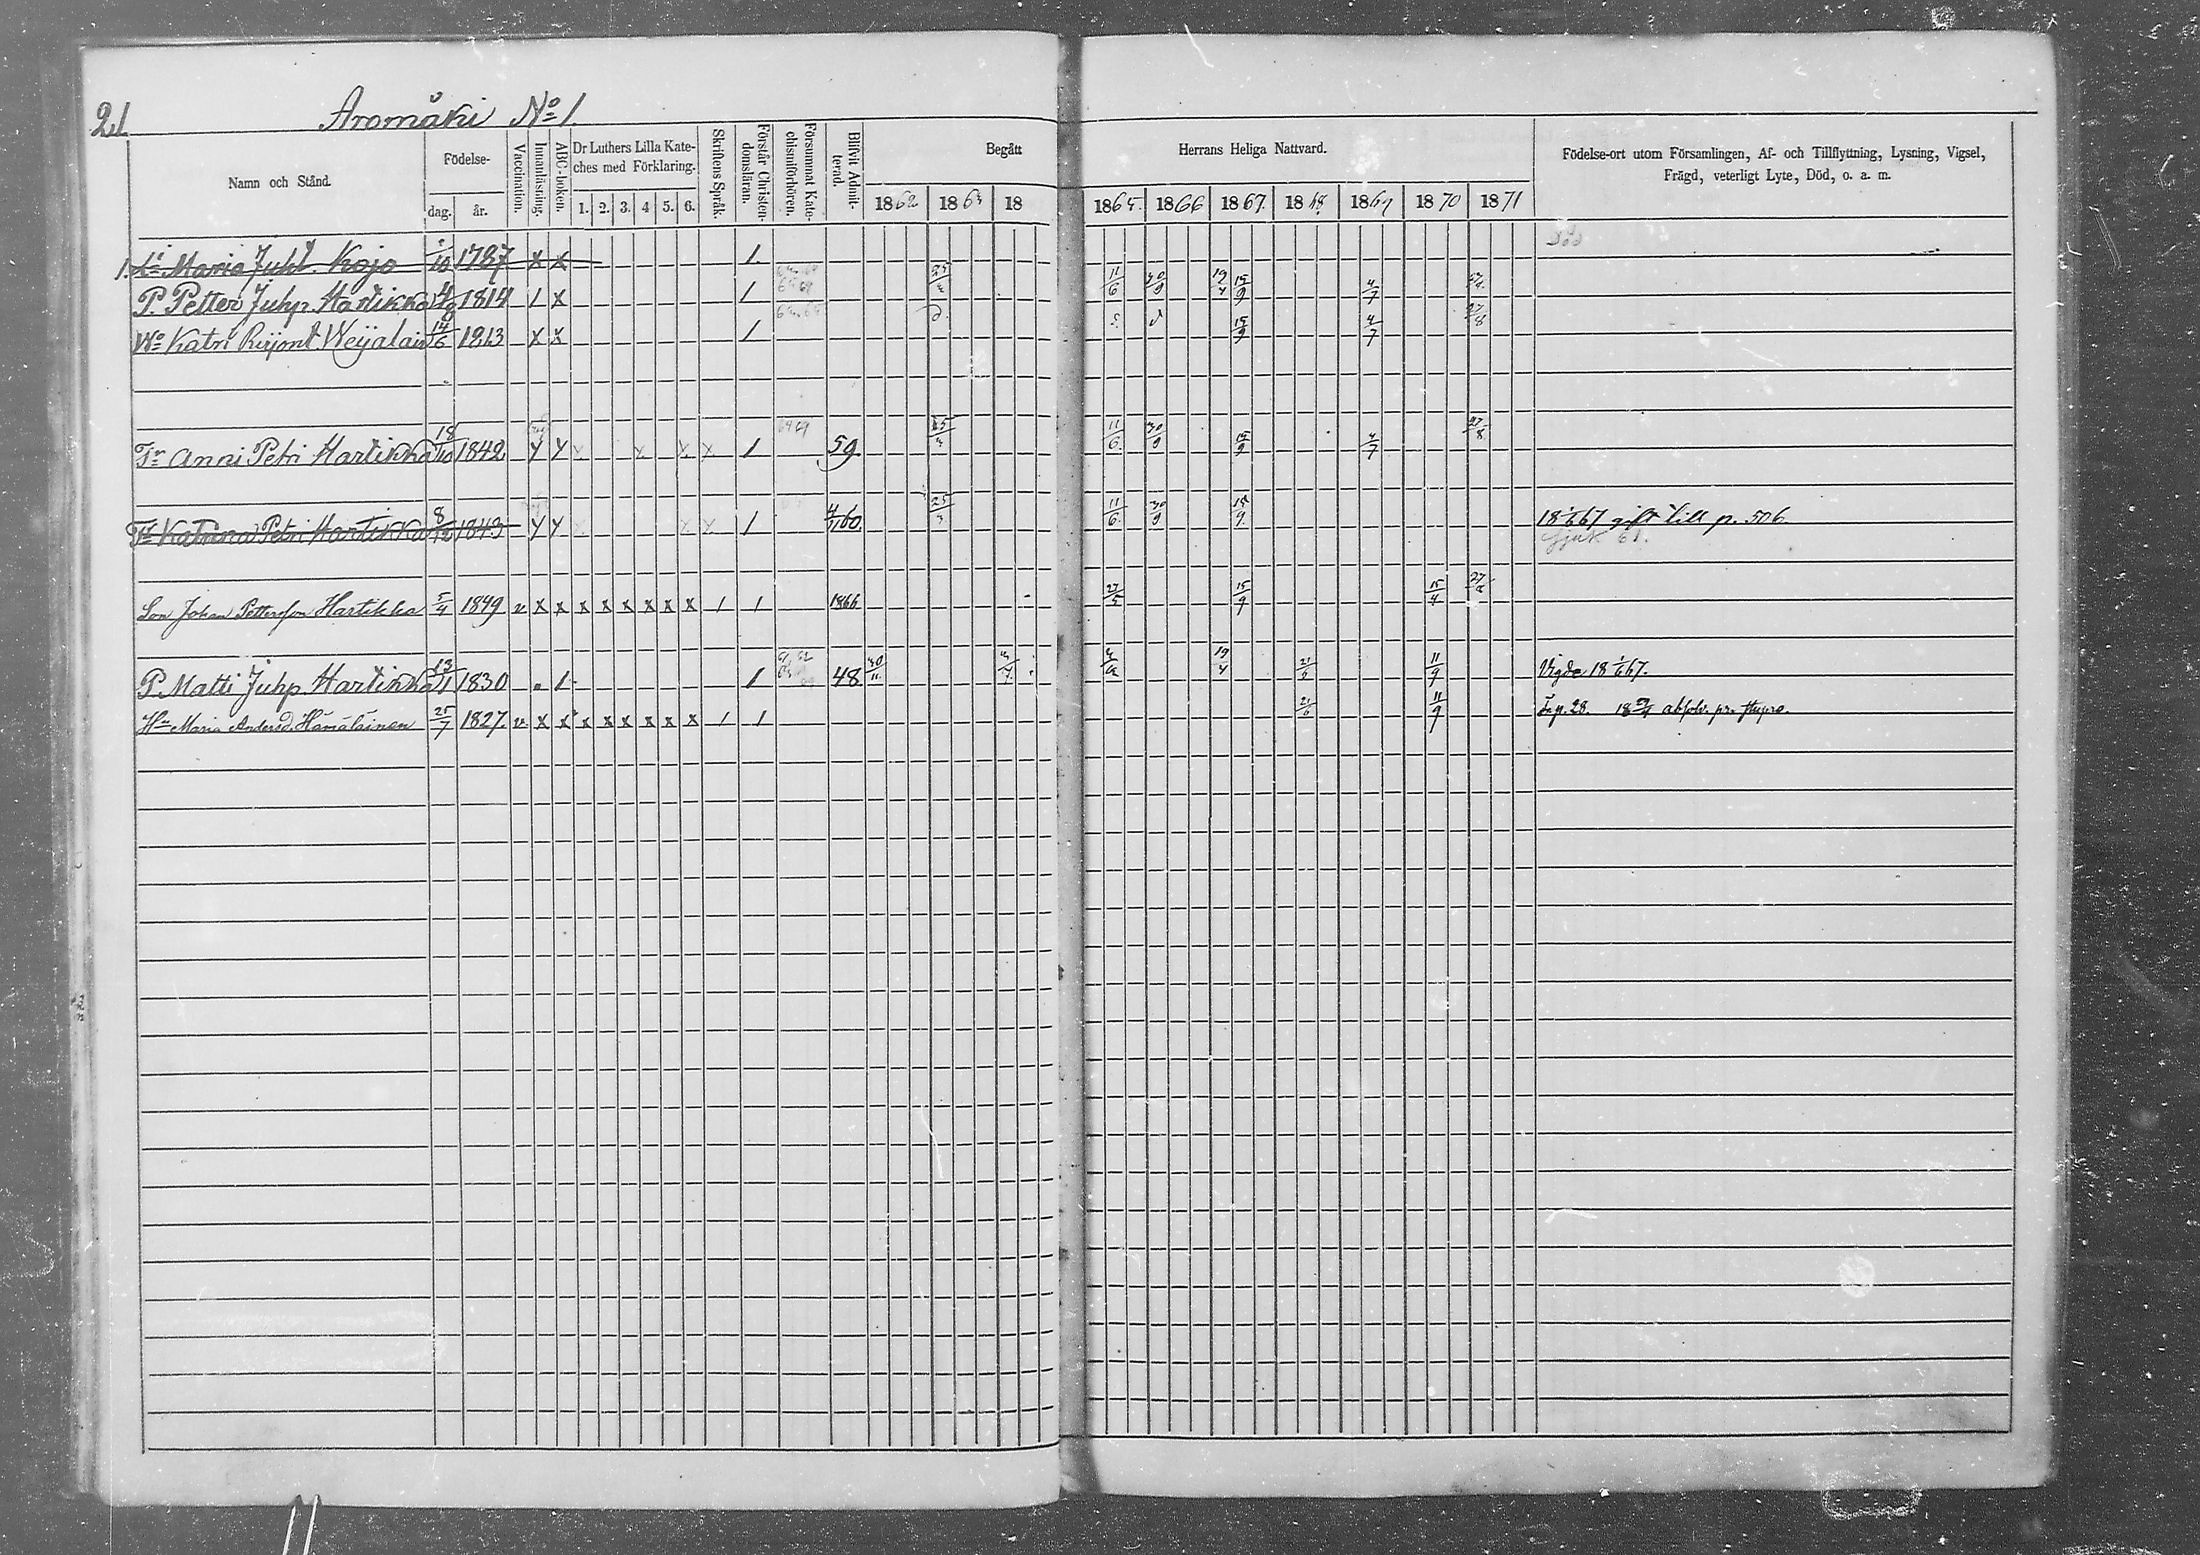 21 Aromäki No 1.
Namn och Stånd. Födelse- dag. år. Vaccination. Innanläsning. ABC-boken. Dr Luthers Lilla Kateches med Förklaring. 1. 2. 3. 4. 5. 6. Skriftens Språk. Förstår Christendomsläran. Försummat Katechismiförhören. Blifvit Admitterad. Begått Herrans Heliga Nattvard. Födelse-ort utom Församlingen, Af- och Tillflyttning, Lysning, Vigsel, Frägd, veterligt Lyte, Död, o. a. m.
1862 1863 18 1865. 1866 1867. 1868 1869 1870 1871
död
1. Maria Juht. Kojo 1/10 1787 x x 1.
P. Petter Juhp. Hartikka 1814 1 x 1 25/3 11/6 30/9 19/4 15/9 4/7
Wo Katri 14/6 1813 x x 1 15/9 4/7 27/8
Tr Anni Petri Hartikka 18/10 1842 Y Y x x x x 1 6469 59 25/3 11/6. 30/9 15/9 4/7 27/8.
Tr Katrina Petri Hartikka 8/12 1843 Y Y x x 1 4/11 60. 25/3 11/6. 30/9 15/9. 18 1/6 67 gift till p. 506.
Son Johan Pettersson Hartikka 5/4 1849 v x x x x x x x x 1 1 1866 15/9 15/4 27/8
P. Matti Juhp. Hartikka 13/1 1830 1 1 48 30/11. 19/4 21/6 11/9 Vigde 18 1/6 67.
Hu Maria Andersd. Hämäläinen 25/7 1827. v x x x x x x x x 1 1 21/6 11/9 absolv. pr. stupro.